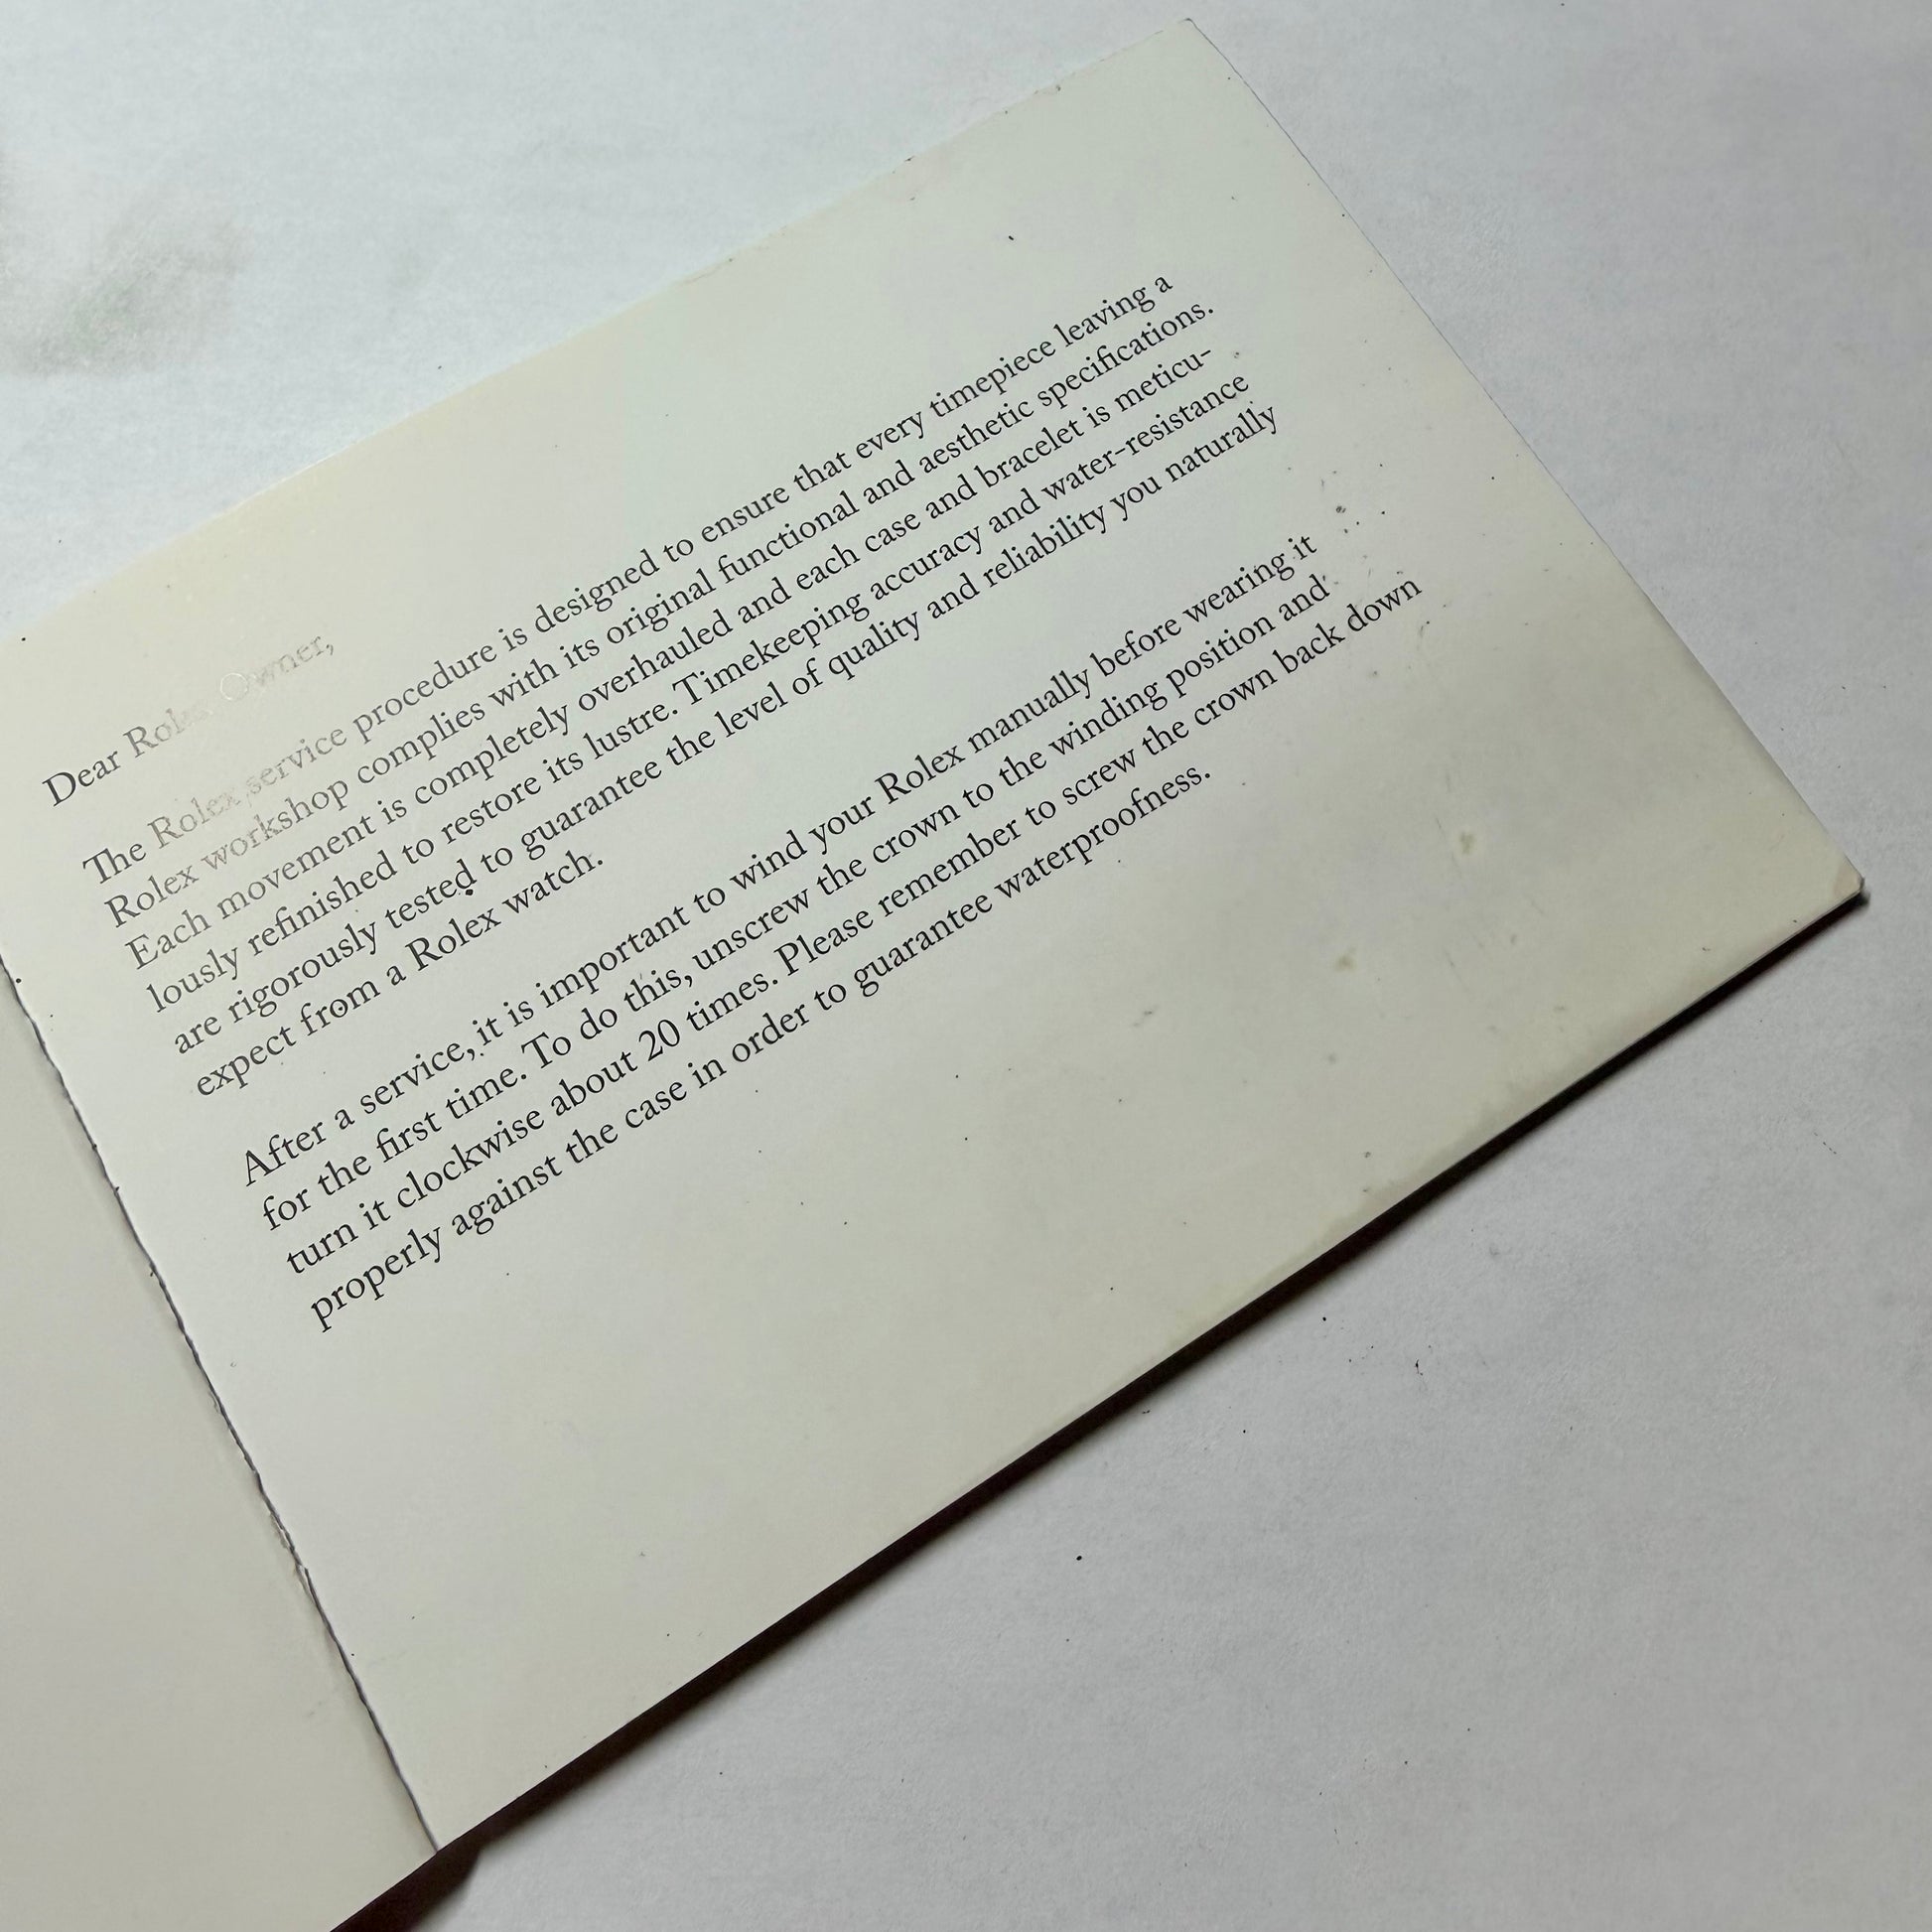 Dear Rolex Owner,
The Rolex service procedure is designed to ensure that every timepiece leaving a
Rolex workshop complies with its original functional and aesthetic specifications.
Each movement is completely overhauled and each case and bracelet is meticu-
lously refinished to restore its lustre. Timekeeping accuracy and water-resistance
are rigorously tested to guarantee the level of quality and reliability you naturally
expect from a Rolex watch.
After a service, it is important to wind your Rolex manually before wearing it
for the first time. To do this, unscrew the crown to the winding position and
turn it clockwise about 20 times. Please remember to screw the crown back down
properly against the case in order to guarantee waterproofness.